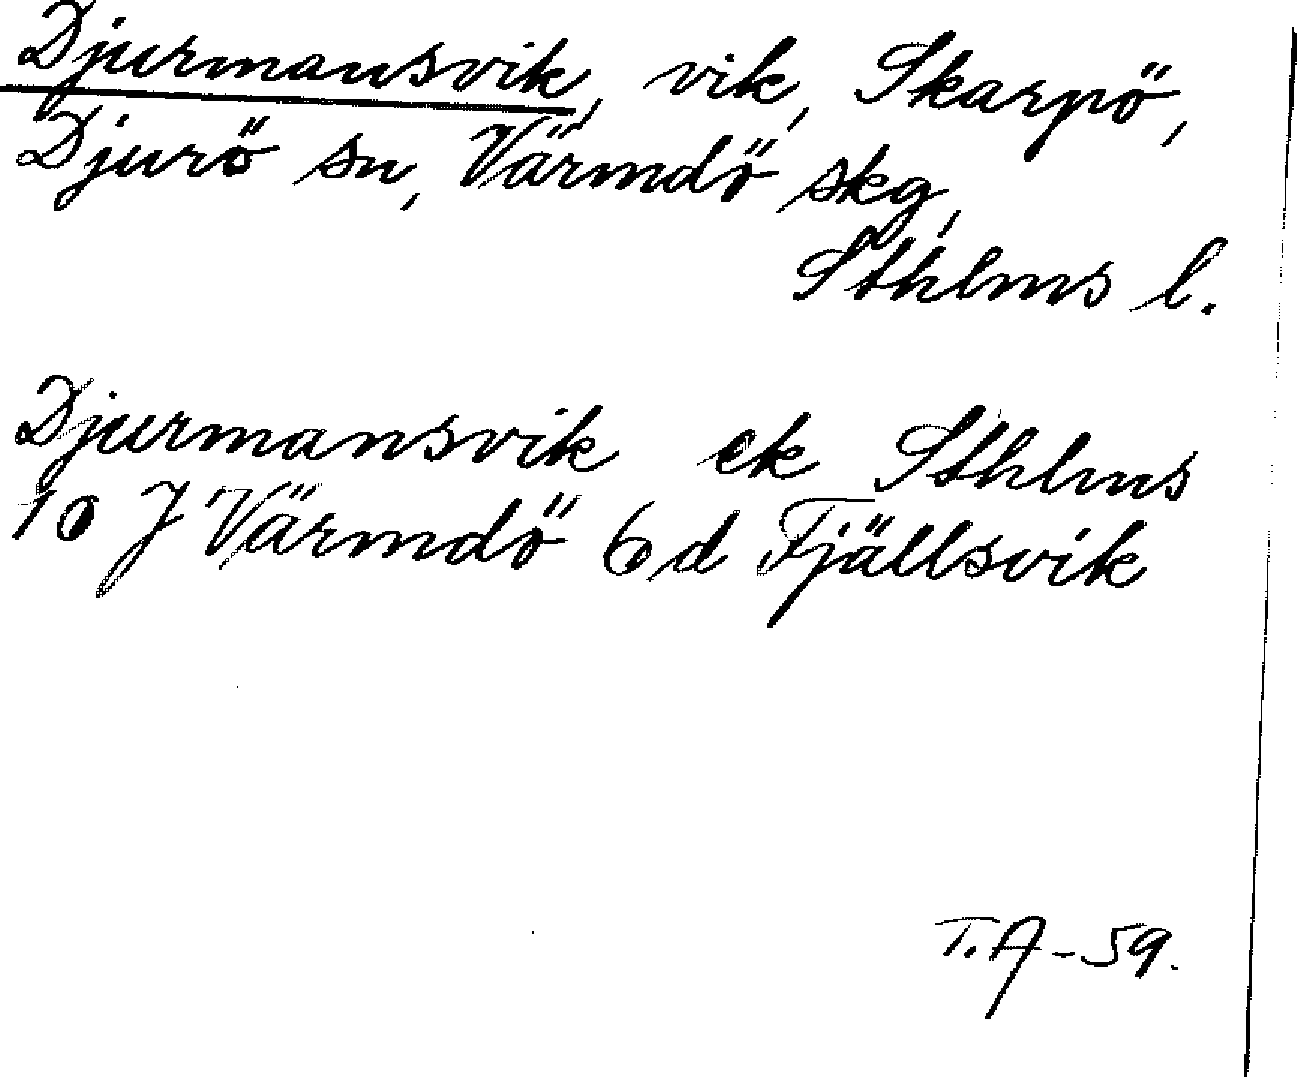 Djurmansvik, vik, Skarpö,
Djurö sn, Värmdö skg,
Sthlms l.
Djurmansvik ek Sthlms
10 J Värmdö 6 d Fjällsvik
T.A-59.